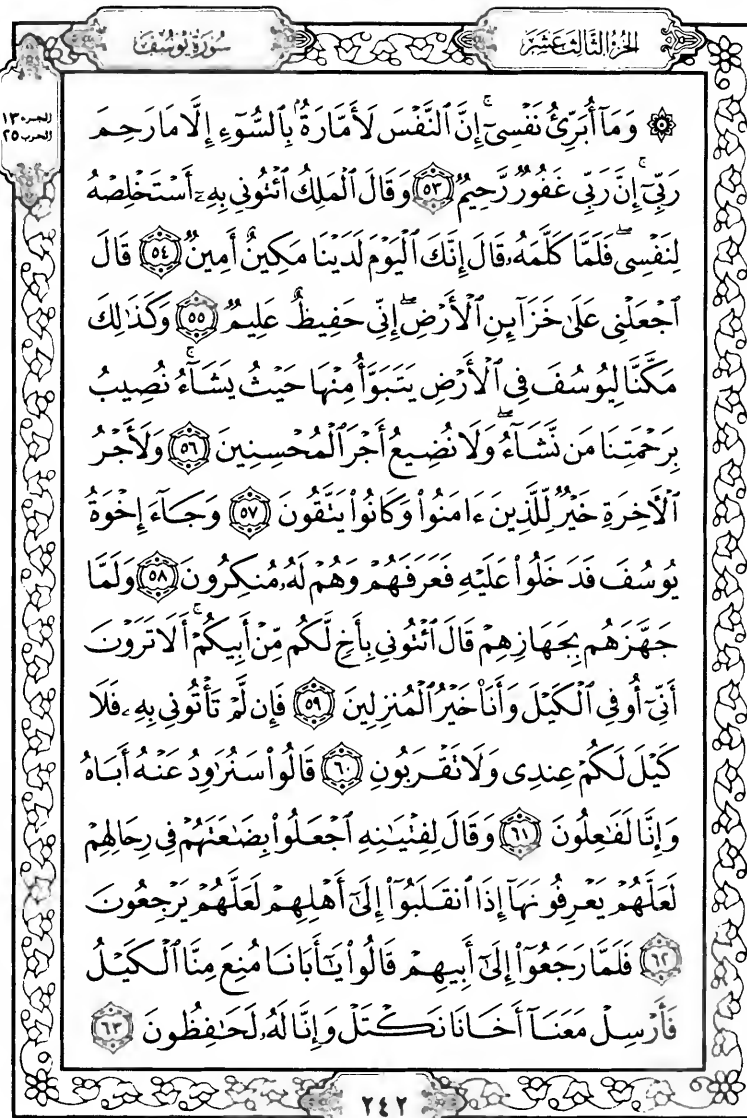 الجزء الثالث عشر
سورة يوسف
الجزء ١٣
الحزب ٢٥
۞ وَمَآ أُبَرِّئُ نَفْسِىٓ ۚ إِنَّ ٱلنَّفْسَ لَأَمَّارَةٌۢ بِٱلسُّوٓءِ إِلَّا مَا رَحِمَ
رَبِّىٓ ۚ إِنَّ رَبِّى غَفُورٌ رَّحِيمٌ ۝٥٣ وَقَالَ ٱلْمَلِكُ ٱئْتُونِى بِهِۦٓ أَسْتَخْلِصْهُ
لِنَفْسِى ۖ فَلَمَّا كَلَّمَهُۥ قَالَ إِنَّكَ ٱلْيَوْمَ لَدَيْنَا مَكِينٌ أَمِينٌ ۝٥٤ قَالَ
ٱجْعَلْنِى عَلَىٰ خَزَآئِنِ ٱلْأَرْضِ ۖ إِنِّى حَفِيظٌ عَلِيمٌ ۝٥٥ وَكَذَٰلِكَ
مَكَّنَّا لِيُوسُفَ فِى ٱلْأَرْضِ يَتَبَوَّأُ مِنْهَا حَيْثُ يَشَآءُ ۚ نُصِيبُ
بِرَحْمَتِنَا مَن نَّشَآءُ ۖ وَلَا نُضِيعُ أَجْرَ ٱلْمُحْسِنِينَ ۝٥٦ وَلَأَجْرُ
ٱلْءَاخِرَةِ خَيْرٌ لِّلَّذِينَ ءَامَنُوا۟ وَكَانُوا۟ يَتَّقُونَ ۝٥٧ وَجَآءَ إِخْوَةُ
يُوسُفَ فَدَخَلُوا۟ عَلَيْهِ فَعَرَفَهُمْ وَهُمْ لَهُۥ مُنكِرُونَ ۝٥٨ وَلَمَّا
جَهَّزَهُم بِجَهَازِهِمْ قَالَ ٱئْتُونِى بِأَخٍ لَّكُم مِّنْ أَبِيكُمْ ۚ أَلَا تَرَوْنَ
أَنِّىٓ أُوفِى ٱلْكَيْلَ وَأَنَا۠ خَيْرُ ٱلْمُنزِلِينَ ۝٥٩ فَإِن لَّمْ تَأْتُونِى بِهِۦ فَلَا
كَيْلَ لَكُمْ عِندِى وَلَا تَقْرَبُونِ ۝٦٠ قَالُوا۟ سَنُرَٰوِدُ عَنْهُ أَبَاهُ
وَإِنَّا لَفَٰعِلُونَ ۝٦١ وَقَالَ لِفِتْيَٰنِهِ ٱجْعَلُوا۟ بِضَٰعَتَهُمْ فِى رِحَالِهِمْ
لَعَلَّهُمْ يَعْرِفُونَهَآ إِذَا ٱنقَلَبُوٓا۟ إِلَىٰٓ أَهْلِهِمْ لَعَلَّهُمْ يَرْجِعُونَ
۝٦٢ فَلَمَّا رَجَعُوٓا۟ إِلَىٰٓ أَبِيهِمْ قَالُوا۟ يَٰٓأَبَانَا مُنِعَ مِنَّا ٱلْكَيْلُ
فَأَرْسِلْ مَعَنَآ أَخَانَا نَكْتَلْ وَإِنَّا لَهُۥ لَحَٰفِظُونَ ۝٦٣
٢٤٢